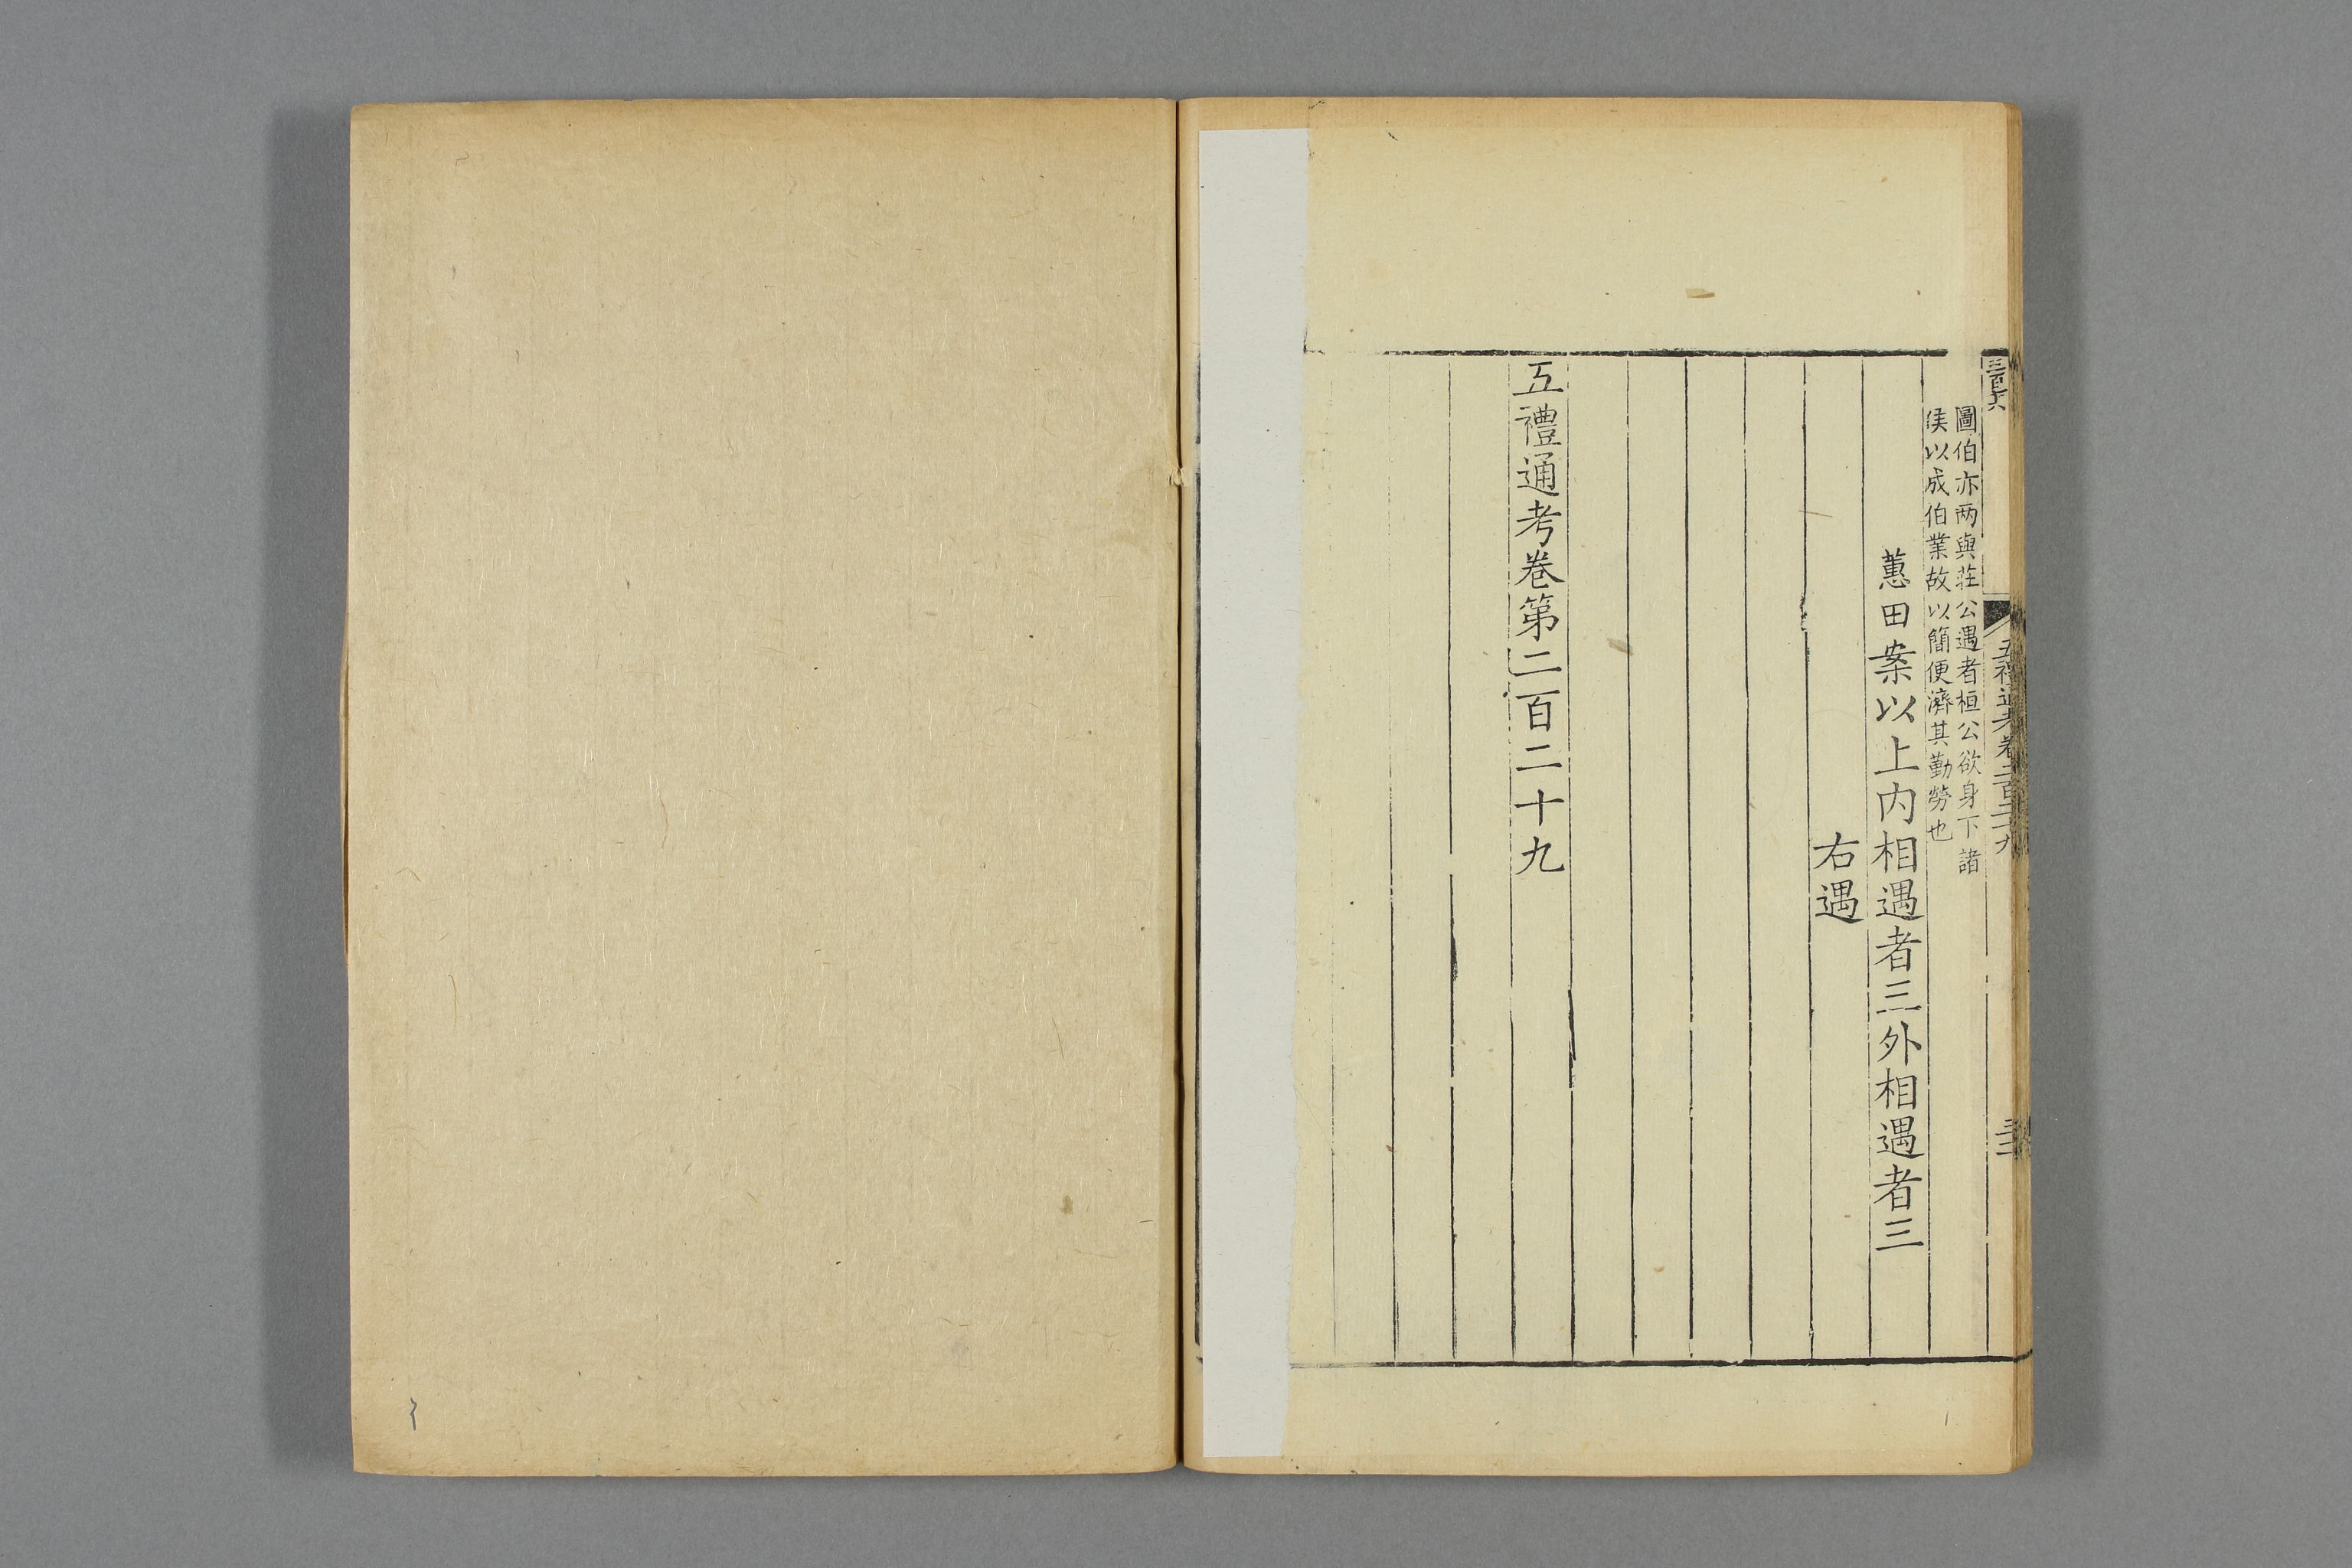 五禮通考卷二百二十九
三十二
圖伯亦两與莊公遇者桓公欲身下諸
侯以成伯業故以簡便濟其勤勞也
蕙田案以上内相遇者三外相遇者三
右遇
五禮通考卷第二百二十九